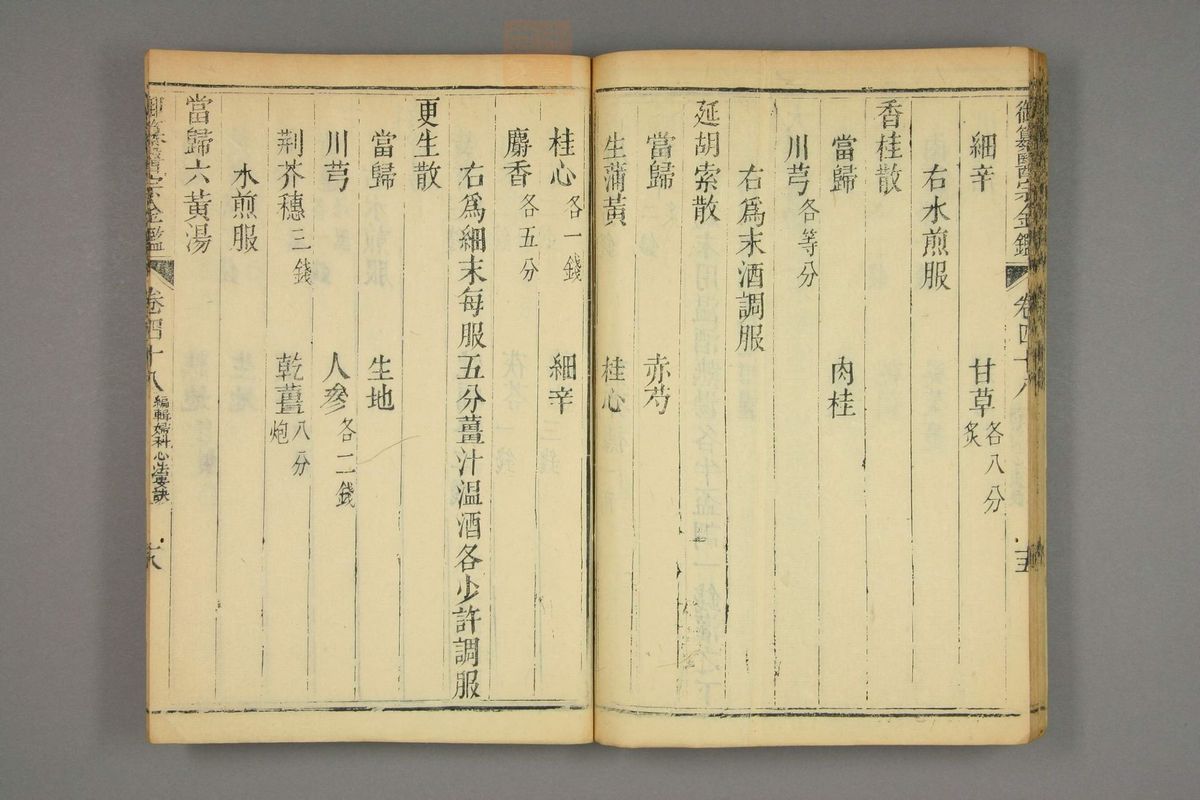 御纂醫宗金鑑 卷四十八 十五
細辛 甘草各八分炙
右水煎服
香桂散
當歸 肉桂
川芎各等分
右為末酒調服
延胡索散
當歸 赤芍
生蒲黃 桂心
桂心各一錢 細辛
麝香各五分
右爲細末每服五分薑汁温酒各少許調服
更生散
當歸 生地
川芎 人參各二錢
荆芥穗三錢 乾薑八分炮
水煎服
當歸六黃湯
御纂醫宗金鑑 卷四十八 編輯婦科心法要訣 十八